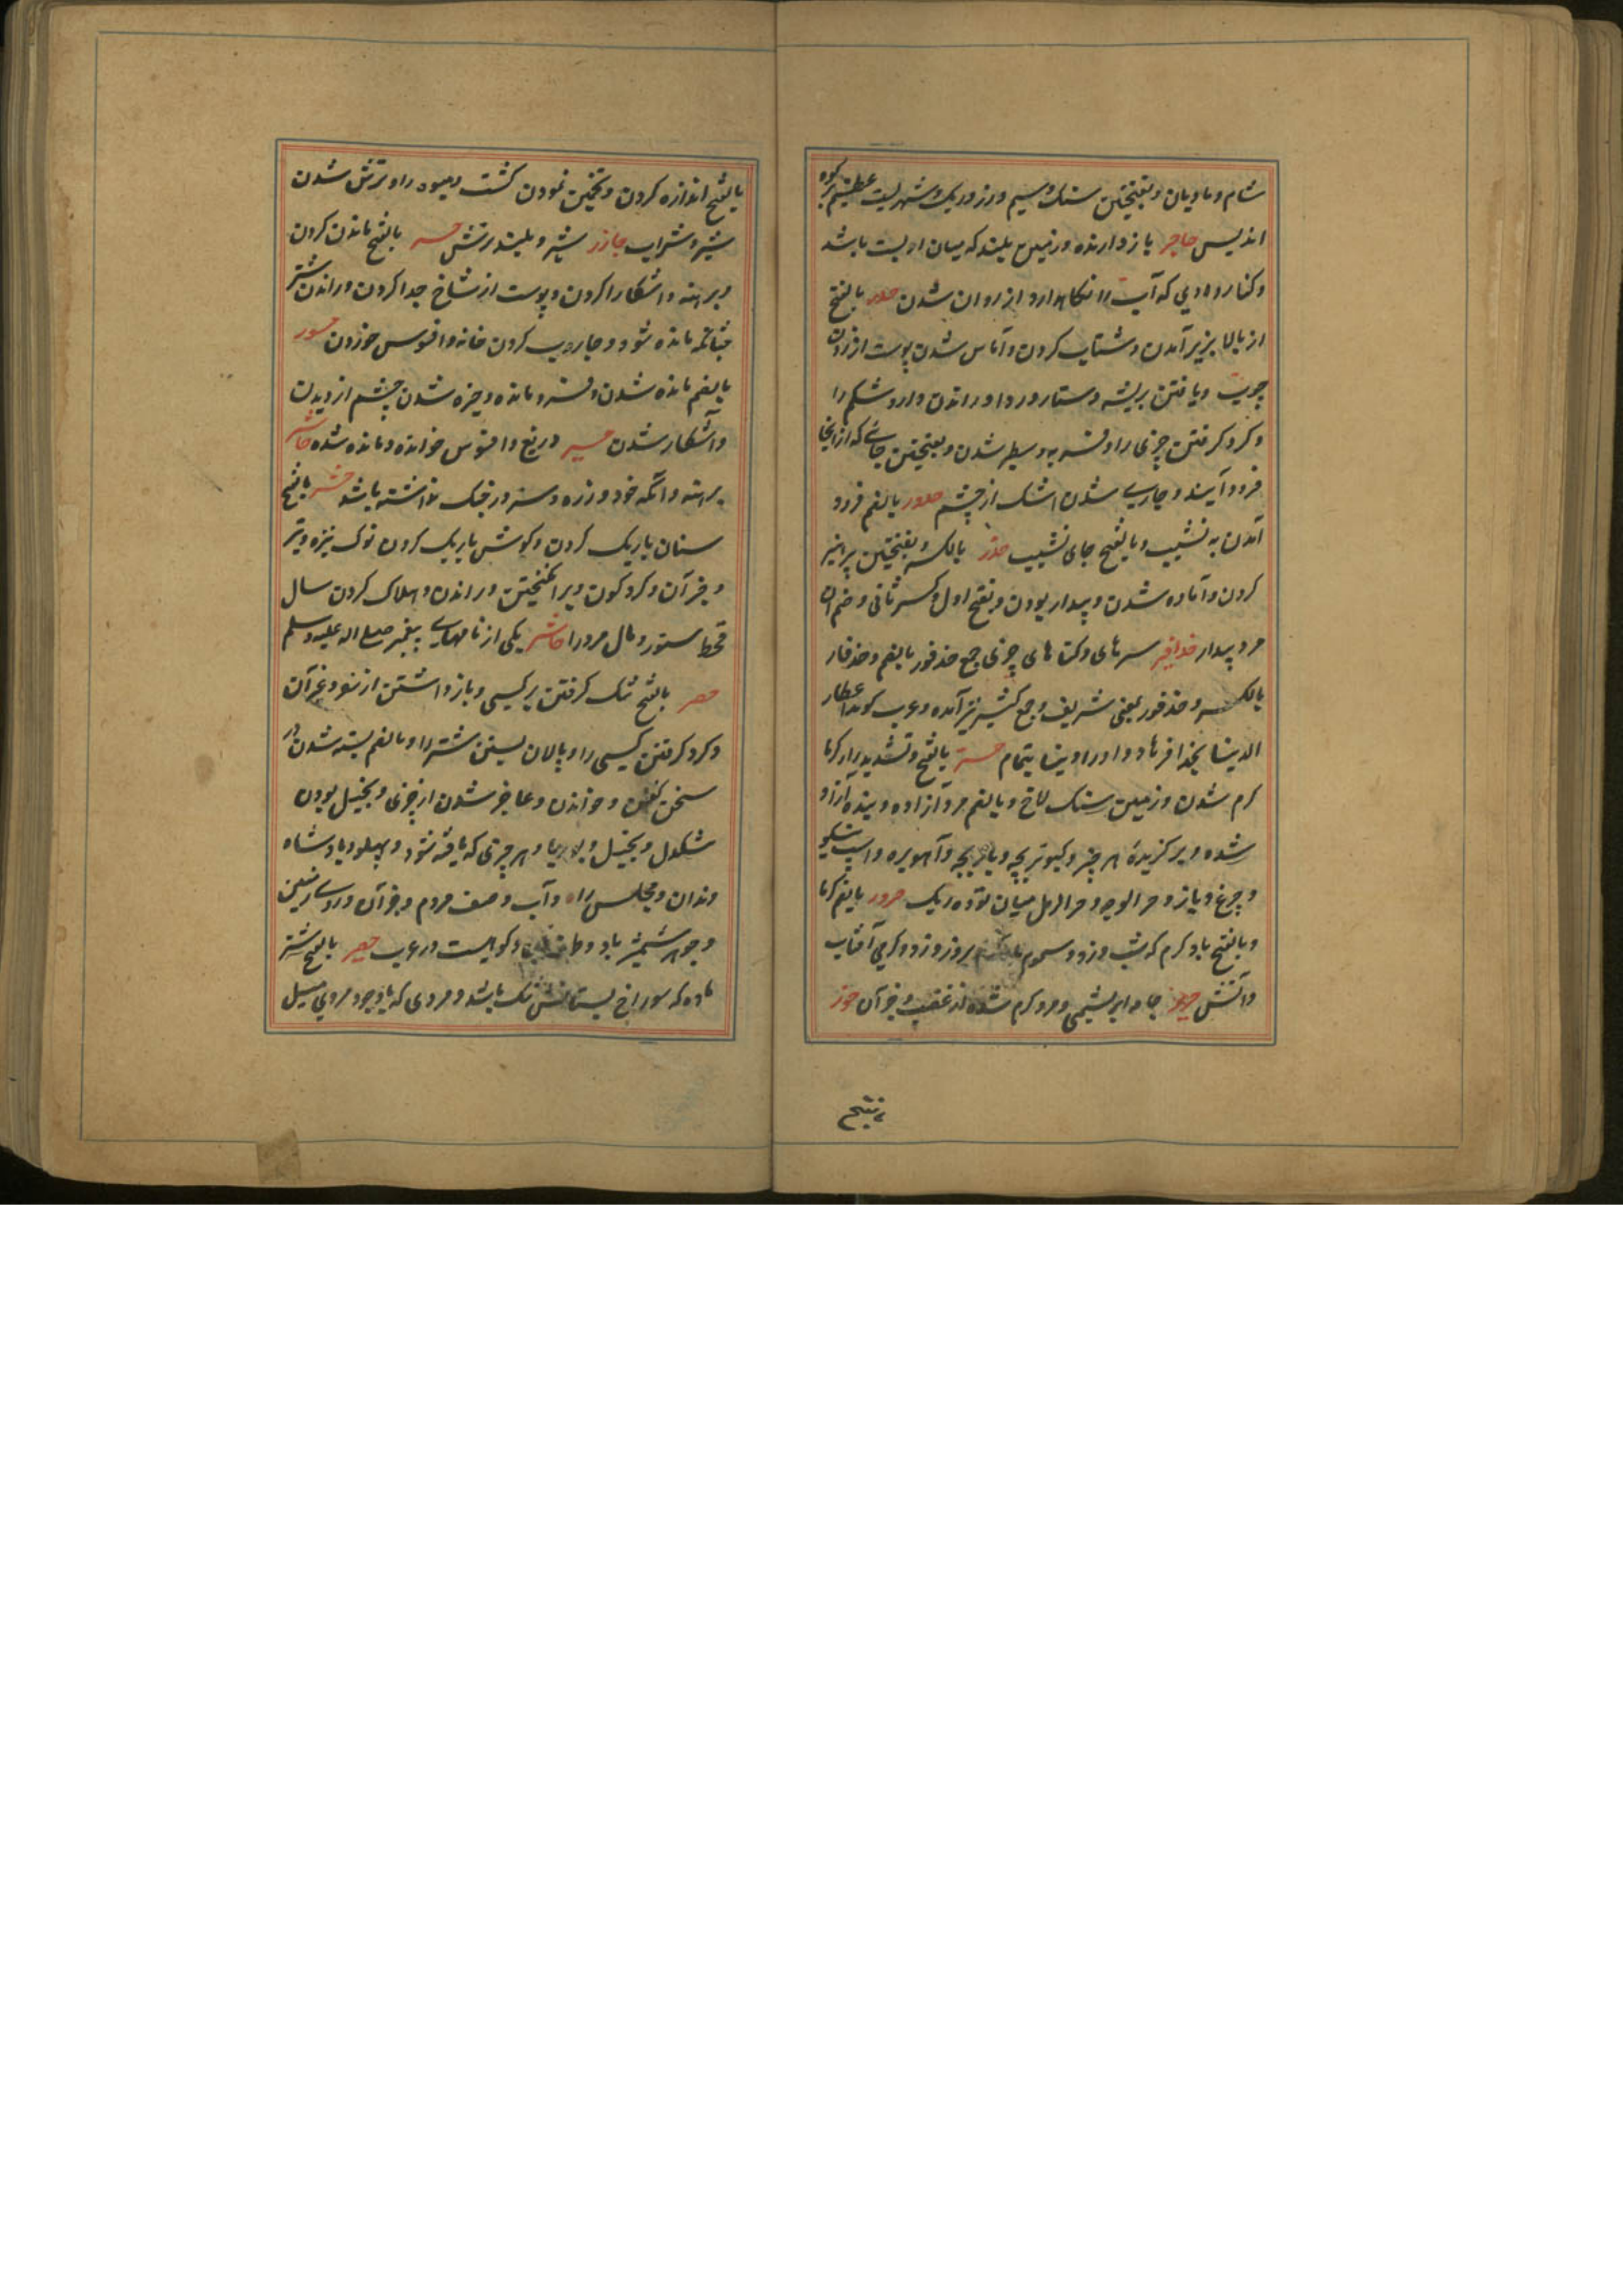 شام و مادیان و بفتحتین سنک و سیم و زر و ریک و شهریست عظیم بر کوه
اندلس حاجر باز دارنده و زمین بلند که میان او پست باشد
و کنار وادی که آب را نکاهدارد از روان شدن حدر بالفتح
از بالا بزیر آمدن و شتاب کردن و آماس شدن پوست از زدن
چوب و یافتن ریشه دستار و ردا و راندن دارو شکم را
و کرد کرفتن چیزی را و فربه و سطبر شدن و بفتحتین جائی که از انجا
فرود آیند و جاری شدن اشک از چشم حدور بالضم فرود
آمدن به نشیب و بالفتح جای نشیب حذر بالکسر و بفتحتین پرهیز
کردن و آماده شدن و بیدار بودن و بفتح اول و کسر ثانی و ضم آن
مرد بیدار حذافیر سرهای و کنارهای چیزی جمع حذفور بالضم و حذفار
بالکسر و حذفور بمعنی شریف و جمع کثیر نیز آمده و عرب کوید اعطاه
الدنیا بحذافیرها داد او را دنیا بتمام حر بالفتح و تشدید را کرما و
کرم شدن و زمین سنک لاخ و بالضم مرد آزاده و بنده آزاد
شده و برکزیدهٔ هر چیز و کبوتر بچه و مار بچه و آهو بره و اسپ نیکو
و چرغ و باز و حر الوجه و حر الرمل میان توده ریک حرور بالضم کرما
و بالفتح باد کرم که بشب وزد و سموم باد کرم بروز وزد و کرمی آفتاب
و آتش حریر جامه ابریشمی و مرد کرم شده از غضب و جز آن حزر
بالفتح
بالفتح اندازه کردن و تخمین نمودن کشت و میوه را و ترش شدن
شیر و شراب حازر شیر و نبیذ ترش حسر بالفتح مانده کردن
و برهنه و آشکارا کردن و پوست از شاخ جدا کردن و راندن شتر
چنانکه مانده شود و جاروب کردن خانه و افسوس خوردن حسور
بالضم مانده شدن و فرو مانده و خیره شدن چشم از دیدن
و آشکار شدن حسیر دریغ و افسوس خورنده و مانده شده حاسر
برهنه و آنکه خود و زره و سپر در جنک نداشته باشد حشر بالفتح
سنان باریک کردن و کوش باریک کردن نوک نیزه و تیر
و جز آن و کرد کردن و برانکیختن و راندن و هلاک کردن سال
قحط ستور و مال مرد را حاشر یکی از نامهای پیغمبر صلی اله علیه وسلم
حصر بالفتح تنک کرفتن بر کسی و باز داشتن از سفر و غیر آن
و کرد کرفتن کسی را و پالان بستن شتر را و بالضم بسته شدن در
سخن کفتن و خواندن و عاجز شدن از چیزی و بخیل بودن
شکم و بخیل و بوریا و هر چیزی که بافته شود و پهلو و پادشاه
و زندان و مجلس و راه و آب و صف مردم و جز آن و روی زمین
و جوهر شمشیر باد و کوهیست در عرب حصور بالفتح شتر
ماده که سوراخ پستانش تنک باشد و مردی که با وجود مردی میل